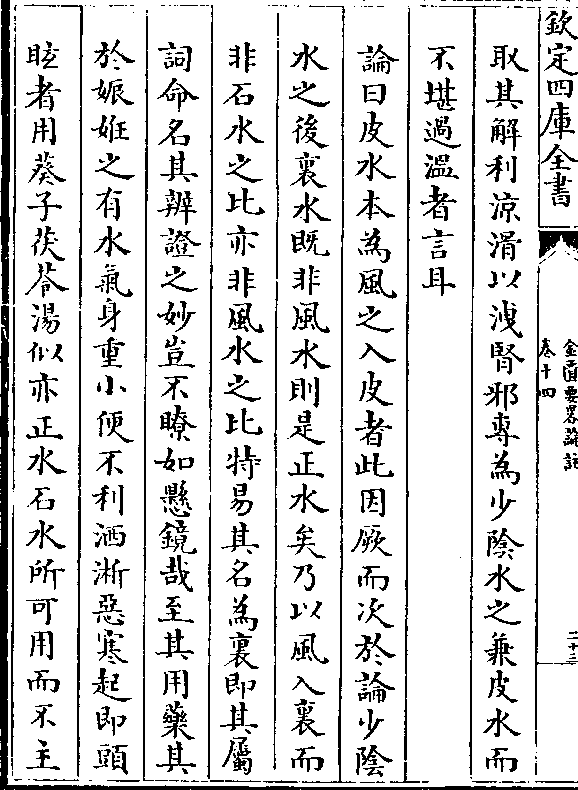 欽定四庫全書
金匱要畧論註
卷十四
二十三
取其解利涼滑以洩腎邪專為少陰水之兼皮水而
不堪過溫者言耳
論曰皮水本為風之入皮者此因厥而次於論少陰
水之後裏水既非風水則是正水矣乃以風入裏而
非石水之比亦非風水之比特易其名為裏即其屬
詞命名其辨證之妙豈不瞭如懸鏡哉至其用藥其
於娠姙之有水氣身重小便不利洒淅惡寒起即頭
眩者用葵子茯苓湯似亦正水石水所可用而不主